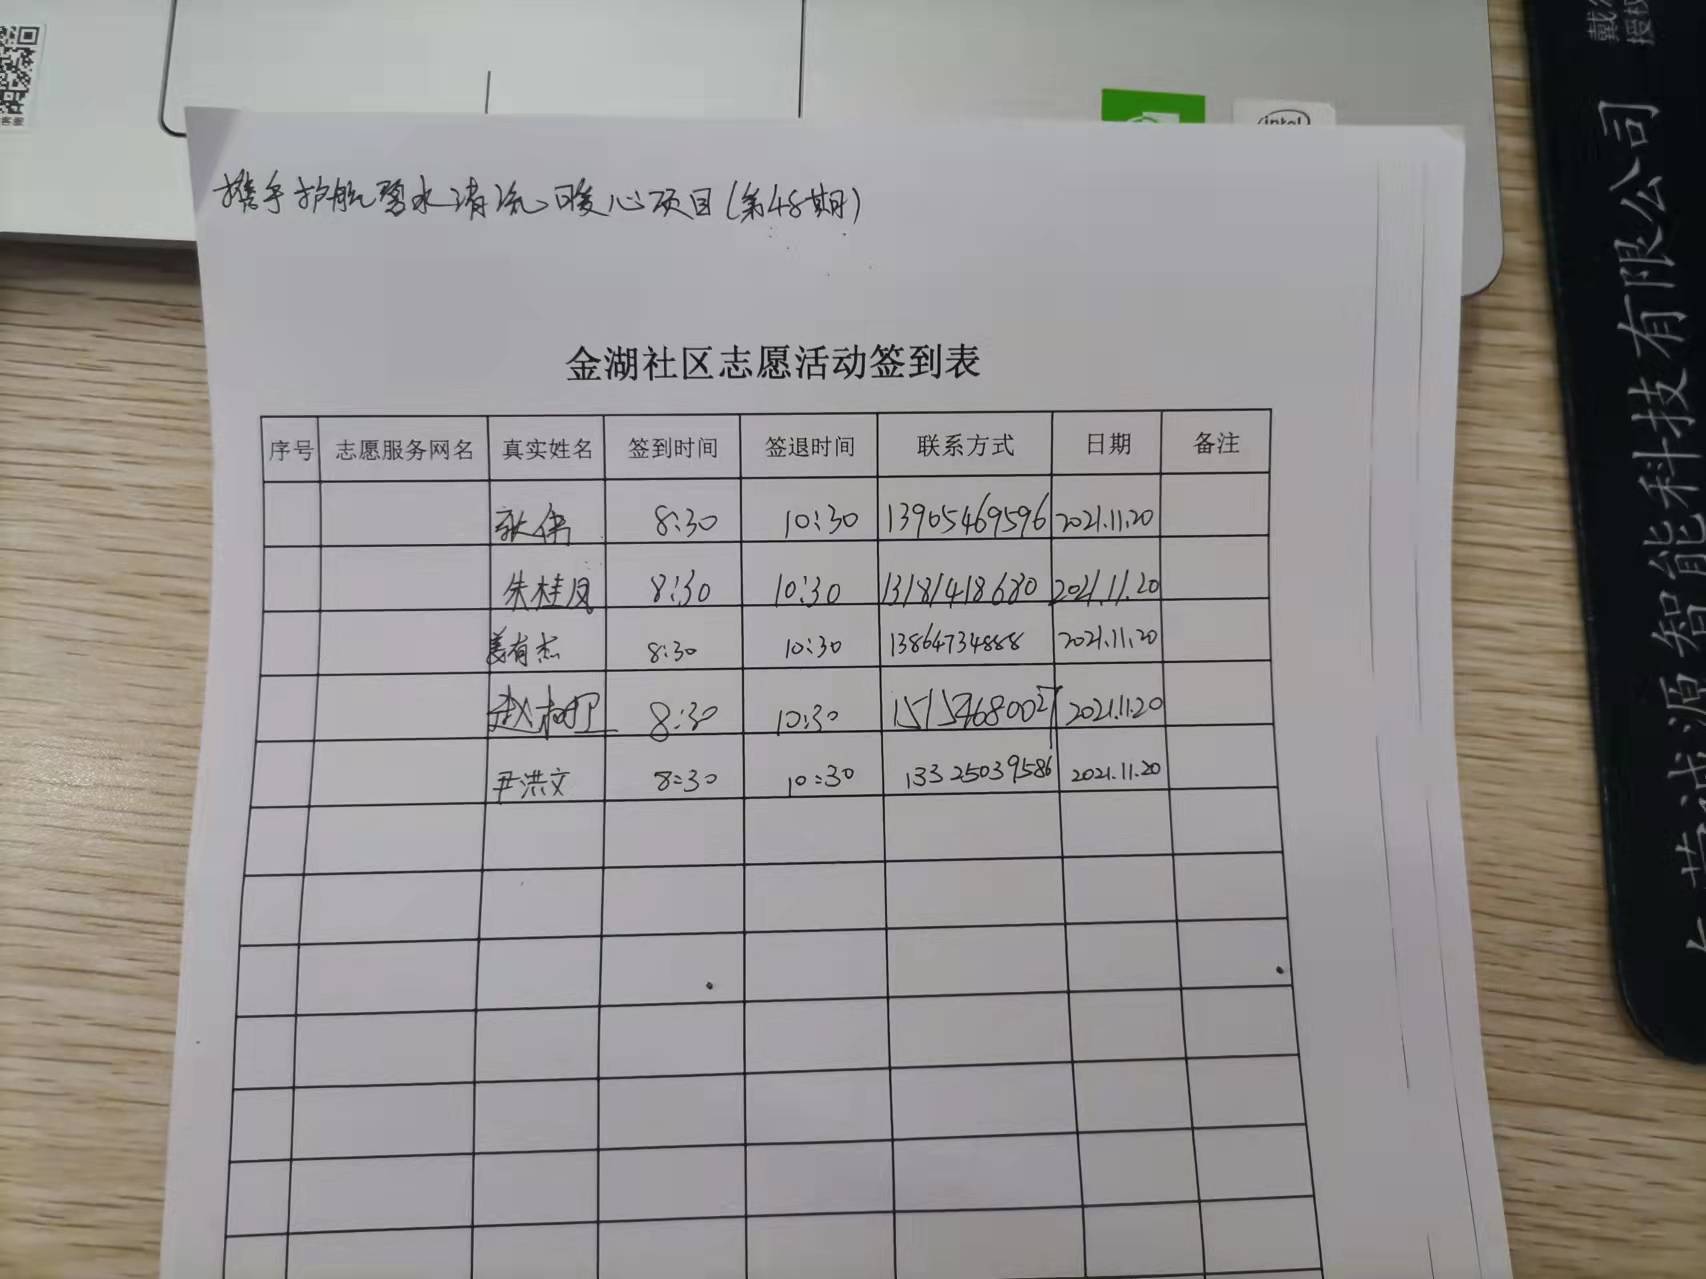 客服
intel
戴尔
授权
诚源智能科技有限公司
携手护航碧水清流暖心项目(第48期)
金湖社区志愿活动签到表
序号 志愿服务网名 真实姓名 签到时间 签退时间 联系方式 日期 备注
8:30 10:30 13905469596 2021.11.20
朱桂凤 8:30 10:30 13181418680 2021.11.20
姜有杰 8:30 10:30 13864734888 2021.11.20
赵 8:30 10:30 15154680027 2021.11.20
尹洪文 8:30 10:30 13325039586 2021.11.20